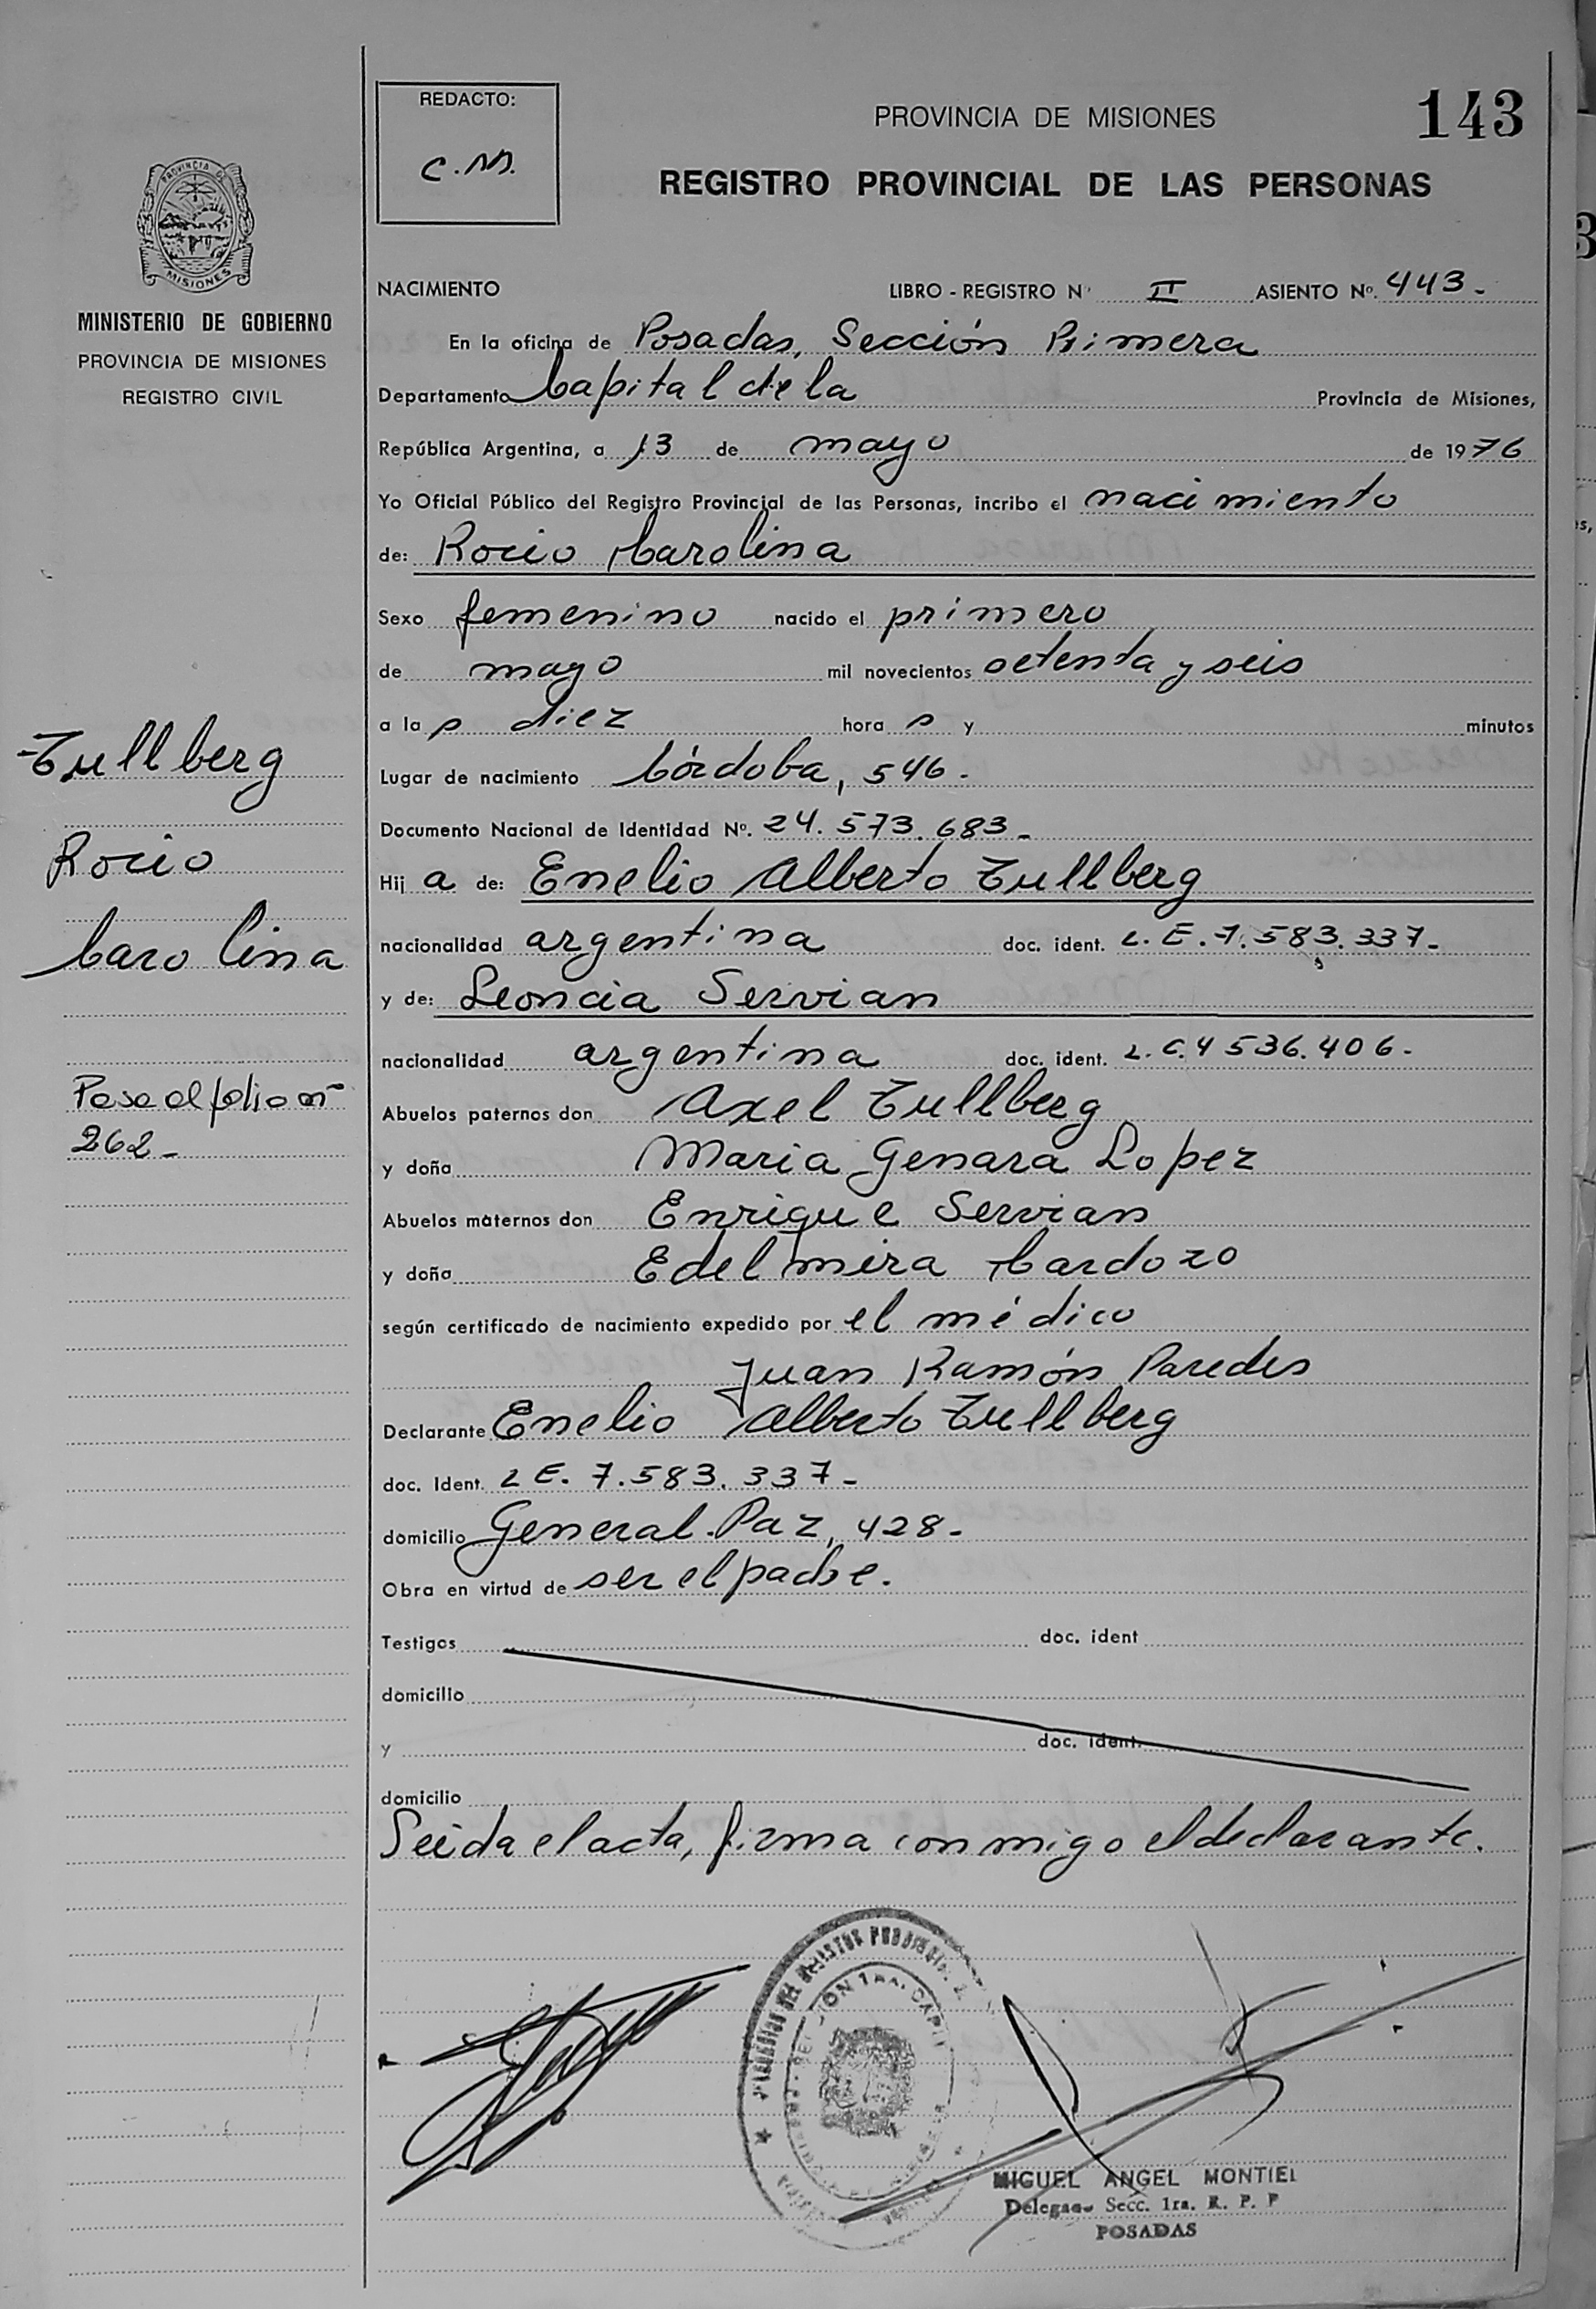 REDACTO:
C.M.
PROVINCIA DE MISIONES
143
REGISTRO PROVINCIAL DE LAS PERSONAS
PROVINCIA DE
MISIONES
MINISTERIO DE GOBIERNO
PROVINCIA DE MISIONES
REGISTRO CIVIL
NACIMIENTO LIBRO - REGISTRO Nº II ASIENTO Nº. 443.-
En la oficina de Posadas, Sección Primera
Departamento Capital de la Provincia de Misiones,
República Argentina, a 13 de mayo de 1976
Yo Oficial Público del Registro Provincial de las Personas, incribo el nacimiento
de: Rocio Carolina
Sexo femenino nacido el primero
de mayo mil novecientos setenta y seis
a la s diez hora s y minutos
Lugar de nacimiento Córdoba, 546.-
Documento Nacional de Identidad Nº. 24.573.683.-
Hij a de: Enelio Alberto Tullberg
nacionalidad argentina doc. ident. L.E.7.583.337.-
y de: Leoncia Servian
nacionalidad argentina doc. ident. L.C.4 536.406.-
Abuelos paternos don Axel Tullberg
y doña Maria Genara Lopez
Abuelos maternos don Enrique Servian
y doña Edelmira Cardozo
según certificado de nacimiento expedido por el médico
Juan Ramón Paredes
Declarante Enelio Alberto Tullberg
doc. Ident. L E. 7.583.337.-
domicilio General Paz, 428.-
Obra en virtud de ser el padre.
Testigos doc. ident
domicilio
y doc. ident.
domicilio
Leida el acta, firma conmigo el declarante.
Tullberg
Rocio
Carolina
Pasa al folio nº
262.-
MIGUEL ANGEL MONTIEL
Delegado Secc. 1ra. R. P. P
POSADAS